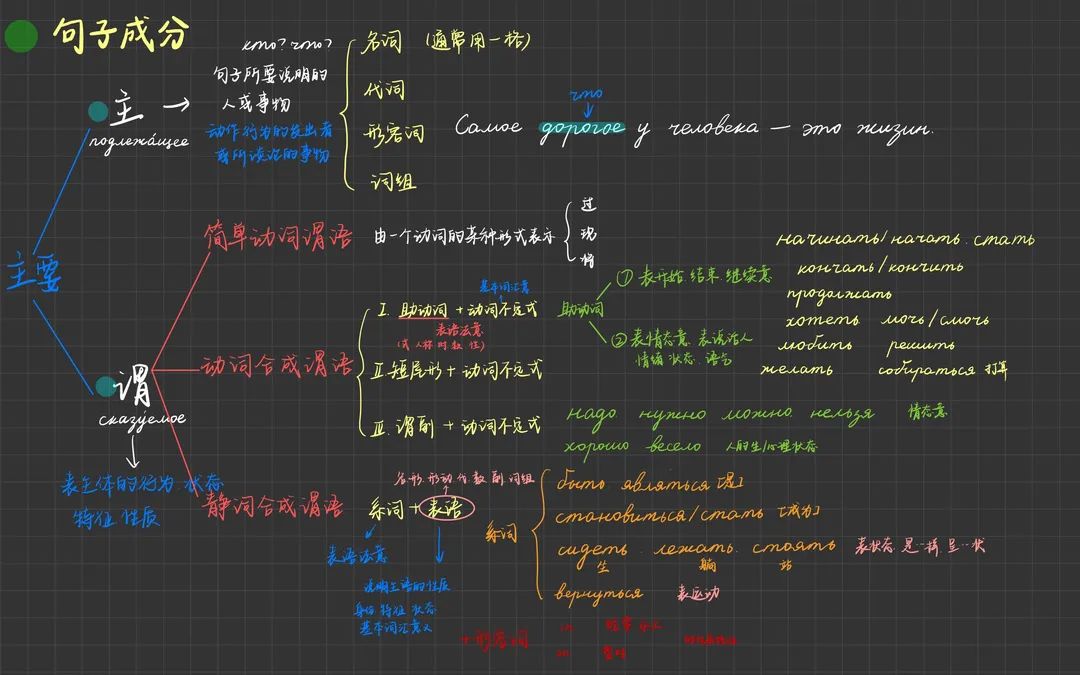 句子成分
主要
主 →
подлежащее
кто? что?
句子所要说明的
人或事物
动作行为的发出者
或所谈论的事物
名词 (通常用一格)
代词
形容词
词组
что
Самое дорогое у человека — это жизин.
谓
сказуемое
表主体的行为 状态
特征 性质
简单动词谓语
由一个动词的某种形式表示
过
现
情
动词合成谓语
基本词汇意
I. 助动词 + 动词不定式
表语法意
(式 人称 时 数 性)
II. 短尾形 + 动词不定式
III. 谓副 + 动词不定式
助动词
① 表开始 结束 继续意
② 表情态意 表说话人
情绪 状态 语气
начинать/начать стать
кончать/кончить
продолжать
хотеть мочь/смочь
любить решить
желать собираться 打算
надо нужно можно нельзя 情态意
хорошо весело 人的生/心理状态
静词合成谓语
名 形 形动 代 数 副 词组
系词 + 表语
表语法意
说明主语的性质
身份 特征 状态
基本词汇意义
系词
быть являться [是]
становиться/стать [成为]
сидеть лежать стоять 表状态
坐 躺 站
вернуться 表运动
+ 形容词